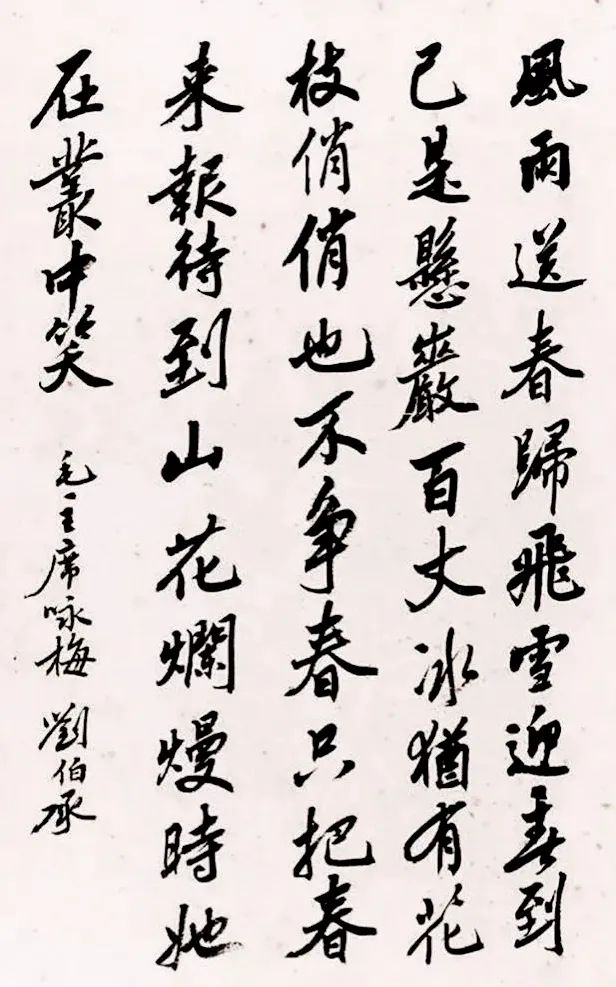 風雨送春歸飛雪迎春到
已是懸巖百丈冰猶有花
枝俏俏也不争春只把春
来報待到山花爛熳時她
在叢中笑
毛主席咏梅 劉伯承